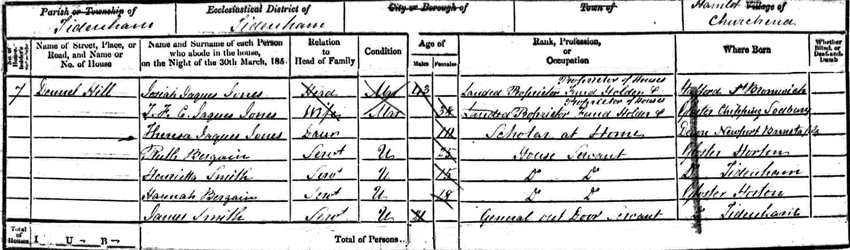 Parish or Township of Ecclesiastical District of City or Borough of Town of Hamlet Village of
Tidenham Tidenham Churchend
Name of Street, Place, or Road, and Name or No. of House
Name and Surname of each Person who abode in the house, on the Night of the 30th March, 185
Relation to Head of Family
Condition
Age of
Males Females
Rank, Profession, or Occupation
Where Born
Whether Blind, or Deaf-and-Dumb
7 Josiah Jaques Jones Mar 43 Landed Proprietor Fund Holder & Proprietor of Houses Stafford
J. F. C. Jaques Jones Wife Mar Landed Proprietor Fund Holder & Proprietor of Houses Gloster Chipping Sodbury
Jaques Jones Daur Scholar at Home Devon Newport
Ruth Bergain Servt U 25 House Servant Gloster Horton
Smith Servt U 15 Do Do Do Tidenham
Hannah Bergain Servt U 18 Do Do Gloster Horton
James Smith Servt U General out Door Servant Tidenham
Total of Houses I U B
Total of Persons